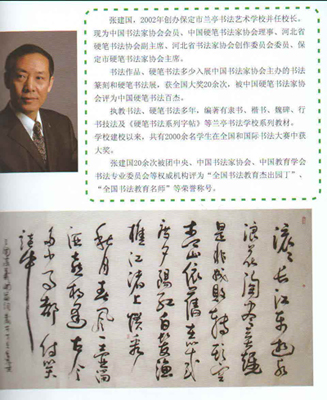 张建国，2002年创办保定市兰亭书法艺术学校并任校长。
现为中国书法家协会会员、中国硬笔书法家协会理事、河北省
硬笔书法协会副主席、河北省书法家协会创作委员会委员、保
定市硬笔书法家协会主席。
书法作品、硬笔书法多少入展中国书法家协会主办的书法
篆刻和硬笔书法展，获全国大奖20余次，被中国硬笔书法家协
会评为中国硬笔书法百杰。
执教书法、硬笔书法多年，编著有隶书、楷书、魏碑、行
书技法及《硬笔书法系列字帖》等兰亭书法学校系列教材。
学校建校以来，共有2000余名学生在全国和国际书法大赛中获
大奖。
张建国20余次被团中央、中国书法家协会、中国教育学会
书法专业委员会等权威机构评为“全国书法教育杰出园丁”、
“全国书法教育名师”等荣誉称号。
滚滚长江东逝水
浪花淘尽英雄
是非成败转头空
青山依旧在几度
夕阳红白发渔
樵江渚上惯看
秋月春风一壶浊
酒喜相逢古今
多少事都付笑
谈中